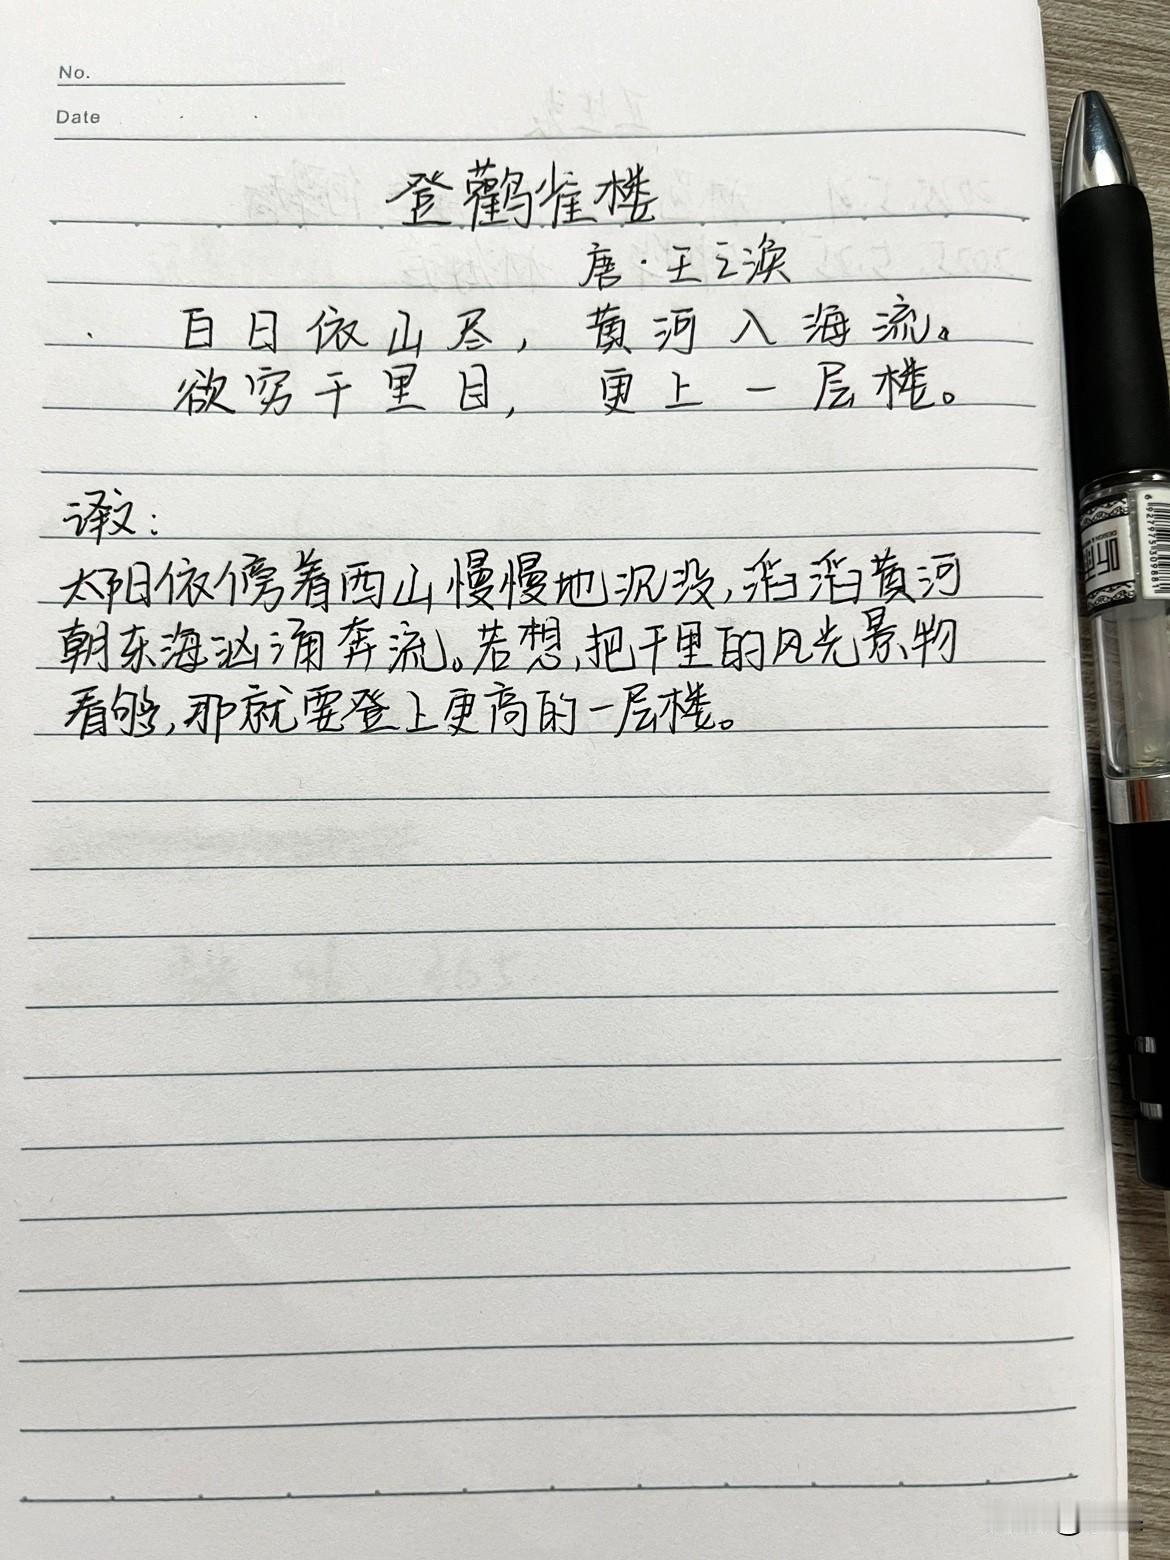 No.
Date
登鹳雀楼
唐·王之涣
白日依山尽，黄河入海流。
欲穷千里目，更上一层楼。
译文：
太阳依傍着西山慢慢地沉没，滔滔黄河
朝东海汹涌奔流。若想，把千里的风光景物
看够，那就要登上更高的一层楼。